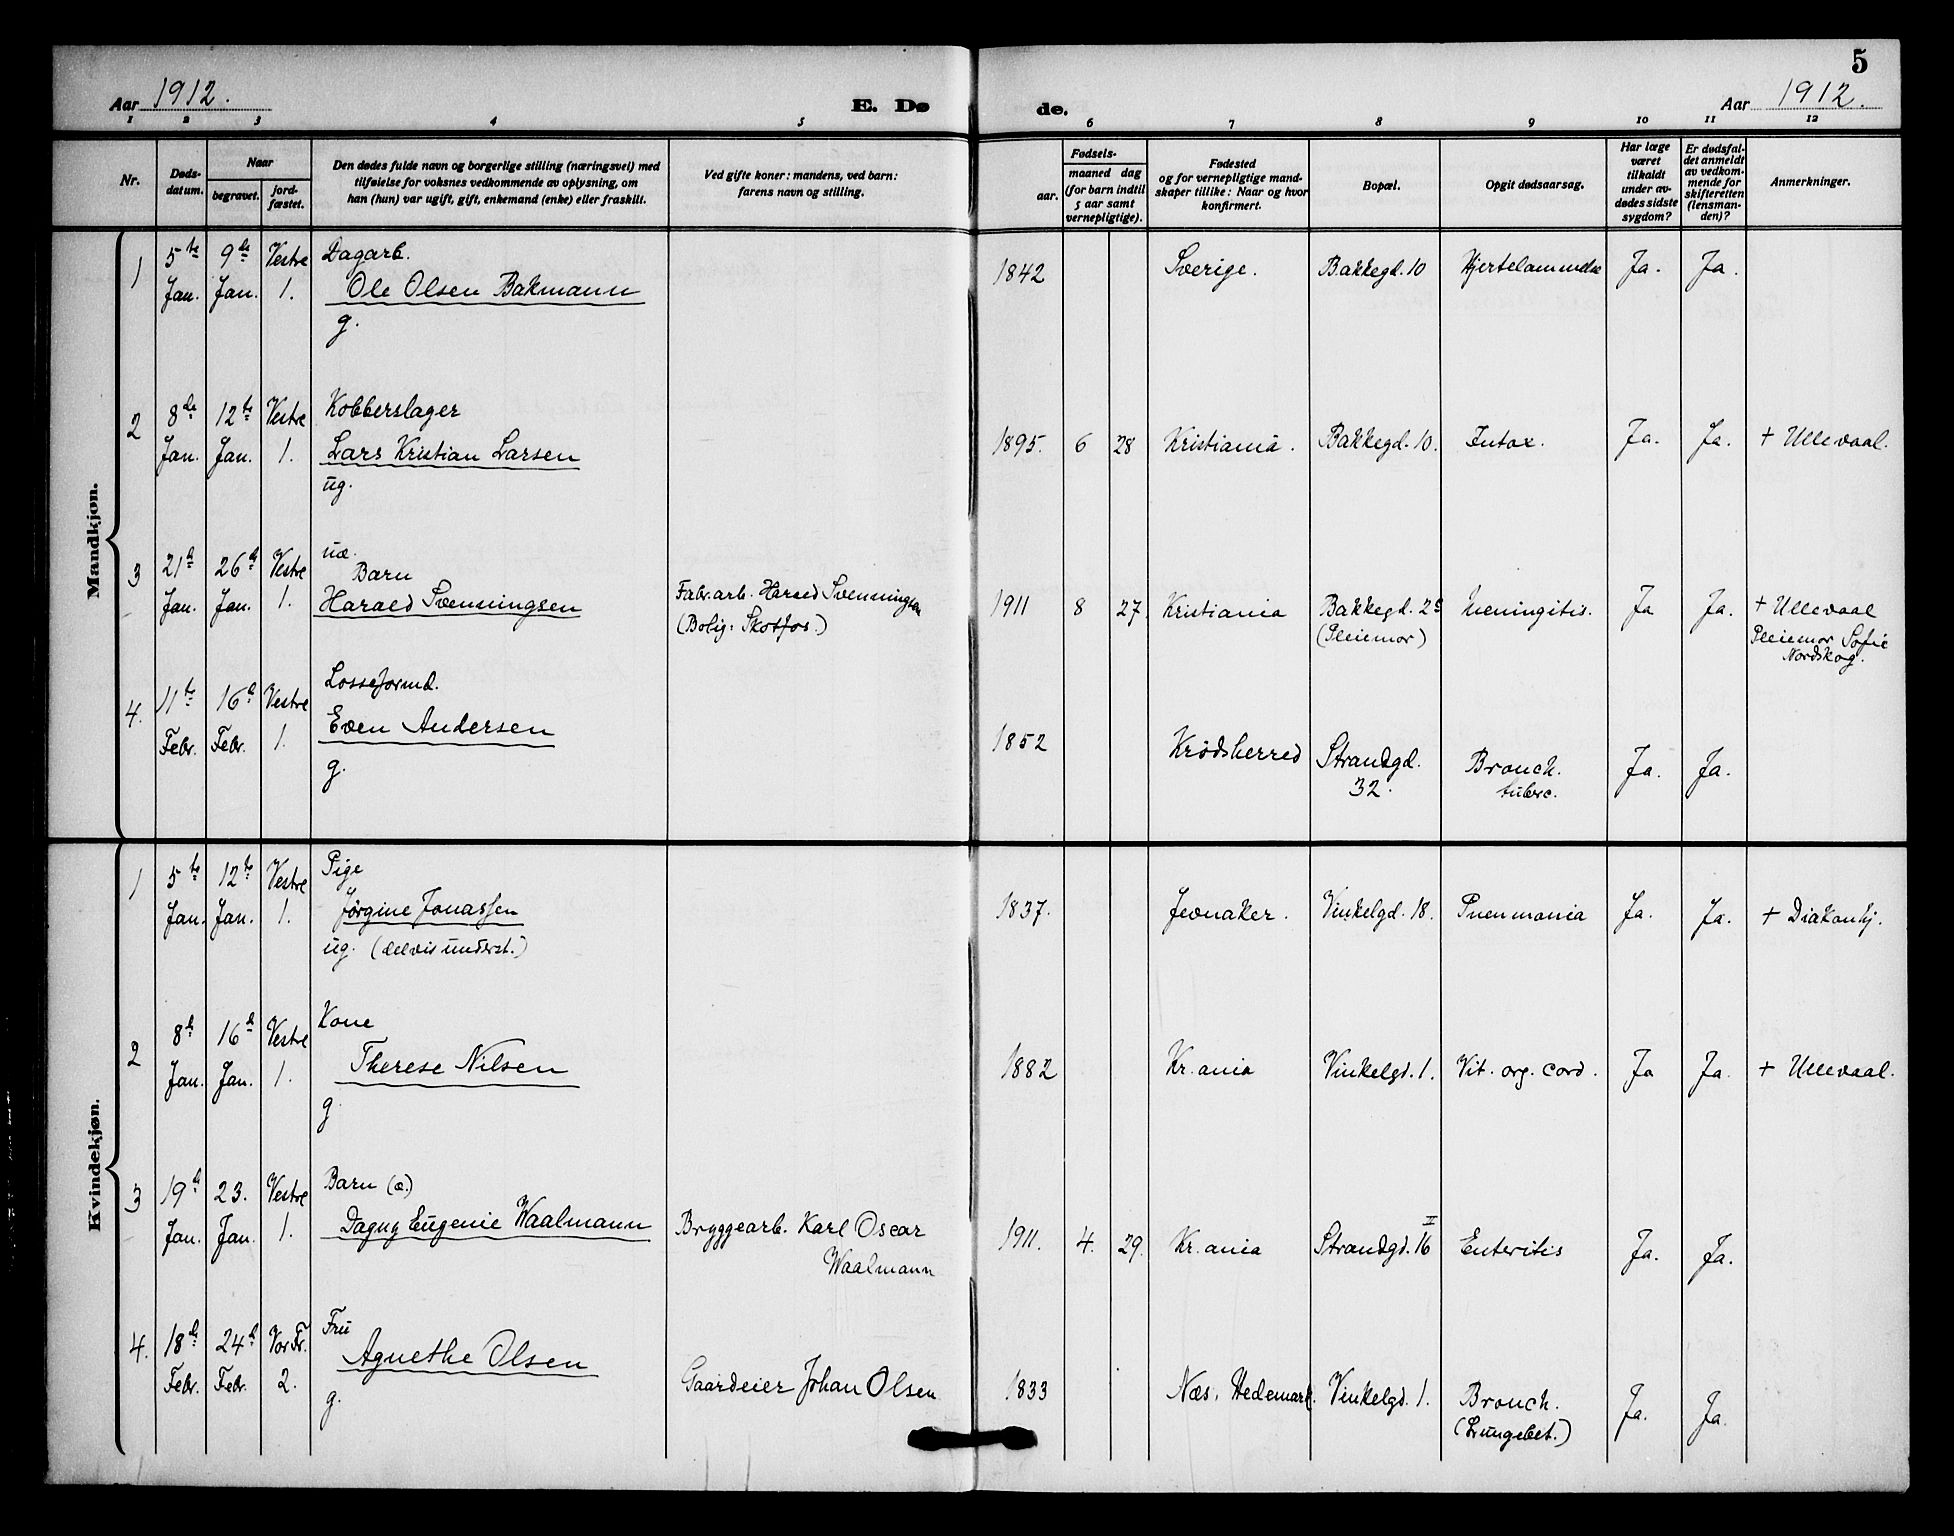 5
Aar 1912.
E. Dø
de.
Aar 1912.
1 2 3 4 5 6 7 8 9 10 11 12
Nr.
Døds-
datum.
Naar
begravet.
jord-
fæstet.
Den dødes fulde navn og borgerlige stilling (næringsvei) med
tilføielse for voksnes vedkommende av oplysning, om
han (hun) var ugift, gift, enkemand (enke) eller fraskilt.
Ved gifte koner: mandens, ved barn:
farens navn og stilling.
Fødsels-
aar.
maaned dag
(for barn indtil
5 aar samt
vernepligtige).
Fødested
og for vernepligtige mand-
skaper tillike: Naar og hvor
konfirmert.
Bopæl.
Opgit dødsaarsag.
Har læge
været
tilkaldt
under av-
dødes sidste
sygdom?
Er dødsfal-
det anmeldt
av vedkom-
mende for
skifteretten
(lensman-
den)?
Anmerkninger.
Mandkjøn.
1 5te Jan. 9de Jan. Vestre 1.
Dagarb.
Ole Olsen Bakmann
g.
1842 Sverige. Bakkegd. 10 Hjertelammelse Ja. Ja.
2 8de Jan. 12te Jan. Vestre 1.
Kobberslager
Lars Kristian Larsen
ug.
1895. 6 28 Kristiania. Bakkegd. 10. Intox. Ja. Ja. + Ullevaal.
3 21d Jan. 26d Jan. Vestre 1.
uæ.
Barn
Harald Svenningsen
Fabr.arb. Harald Svenningsen
(Bolig: Skotfos.)
1911 8 27. Kristiania Bakkegd. Meningitis. Ja Ja. + Ullevaal
(Pleiemor)
Pleiemor Sofie
Nordskog.
4. 11te Febr. 16d Febr. Vestre 1.
Losseformd.
Even Andersen
g.
1852 Krødsherred Strandgd.
32.
Bronch.
tuberc.
Ja. Ja.
Kvindekjøn.
1 5te Jan. 12te Jan. Vestre 1.
Pige
Jørgine Jonassen
ug. (delvis underst.)
1837. Jevnaker. Vinkelgd. 18. Pneumonia Ja. Ja. + Diakonhj.
2 8d Jan. 16d Jan. Vestre 1.
Kone
Therese Nilsen
g.
1882 Kr.ania Vinkelgd. 1. Vit. org. cord. Ja Ja. + Ullevaal.
3 19d Jan. 23. Jan. Vestre 1.
Barn (æ.)
Dagny Eugenie Waalmann
Bryggearb. Karl Oscar
Waalmann
1911. 4. 29. Kr.ania Strandgd. 16 II Enteritis Ja. Ja.
4. 18d Febr. 24d Febr. Vor Fr. 2.
Fru
Agnethe Olsen
g.
Gaardeier Johan Olsen
1833 Næs, Hedemark. Vinkelgd. 1. Bronch.
(Lungebet.)
Ja. Ja.